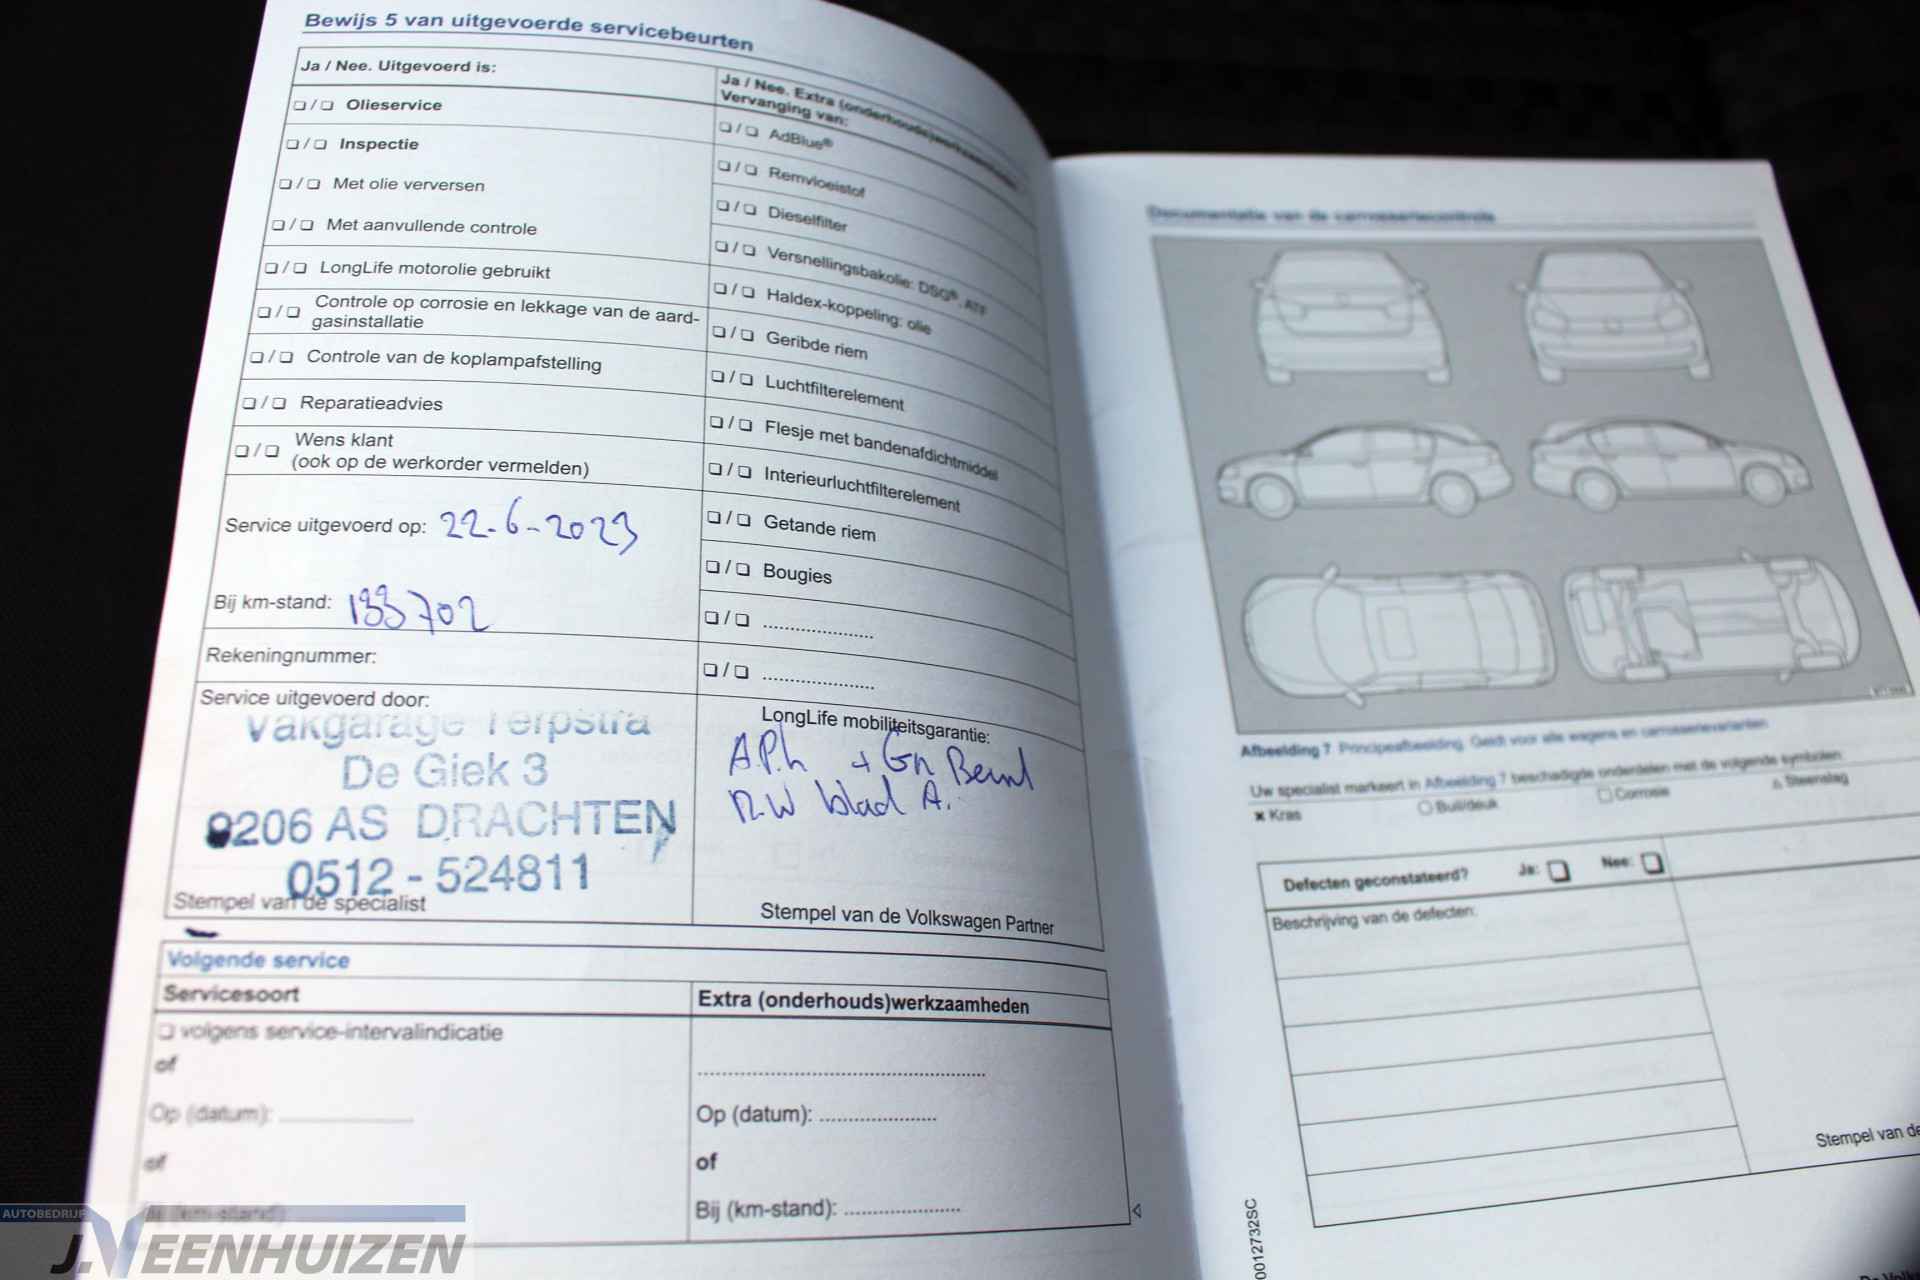 Bewijs 5 van uitgevoerde servicebeurten
Ja / Nee. Uitgevoerd is:
❏ / ❏ Olieservice
❏ / ❏ Inspectie
❏ / ❏ Met olie verversen
❏ / ❏ Met aanvullende controle
❏ / ❏ LongLife motorolie gebruikt
❏ / ❏ Controle op corrosie en lekkage van de aard-
gasinstallatie
❏ / ❏ Controle van de koplampafstelling
❏ / ❏ Reparatieadvies
❏ / ❏ Wens klant
(ook op de werkorder vermelden)
Service uitgevoerd op: 22-6-2023
Bij km-stand: 133702
Rekeningnummer:
Service uitgevoerd door:
Vakgarage Terpstra
De Giek 3
9206 AS DRACHTEN
0512 - 524811
Stempel van de specialist
Ja / Nee. Extra (onderhouds)werkzaamheden
Vervanging van:
❏ / ❏ AdBlue®
❏ / ❏ Remvloeistof
❏ / ❏ Dieselfilter
❏ / ❏ Versnellingsbakolie: DSG®, ATF
❏ / ❏ Haldex-koppeling: olie
❏ / ❏ Geribde riem
❏ / ❏ Luchtfilterelement
❏ / ❏ Flesje met bandenafdichtmiddel
❏ / ❏ Interieurluchtfilterelement
❏ / ❏ Getande riem
❏ / ❏ Bougies
❏ / ❏ .....................
❏ / ❏ .....................
LongLife mobiliteitsgarantie:
A.P.k + Gr Beurt
blad A.
Stempel van de Volkswagen Partner
Volgende service
Servicesoort
❏ volgens service-intervalindicatie
of
Op (datum):
of
Bij (km-stand):
Extra (onderhouds)werkzaamheden
Op (datum): .....................
of
Bij (km-stand): .....................
Documentatie van de carrosseriecontrole
Afbeelding 7 Principeafbeelding. Geldt voor alle wagens en carrosserievarianten
Uw specialist markeert in Afbeelding 7 beschadigde onderdelen met de volgende symbolen:
✖ Kras ○ Buil/deuk □ Corrosie △ Steenslag
Defecten geconstateerd? Ja: ❏ Nee: ❏
Beschrijving van de defecten:
Stempel van de
0012732SC
AUTOBEDRIJF
J.VEENHUIZEN